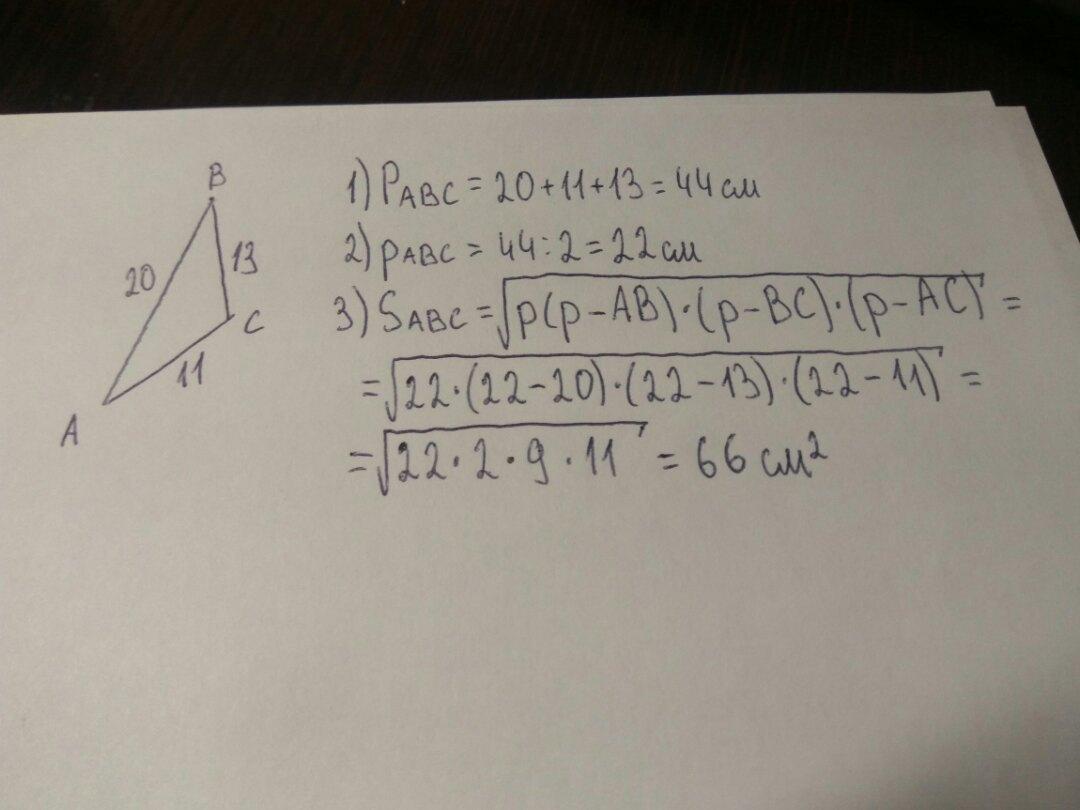 B
20
13
C
11
A
1) PABC = 20+11+13 = 44 см
2) pABC = 44 : 2 = 22 см
3) SABC = √p(p-AB)·(p-BC)·(p-AC) =
= √22·(22-20)·(22-13)·(22-11) =
= √22·2·9·11 = 66 см²